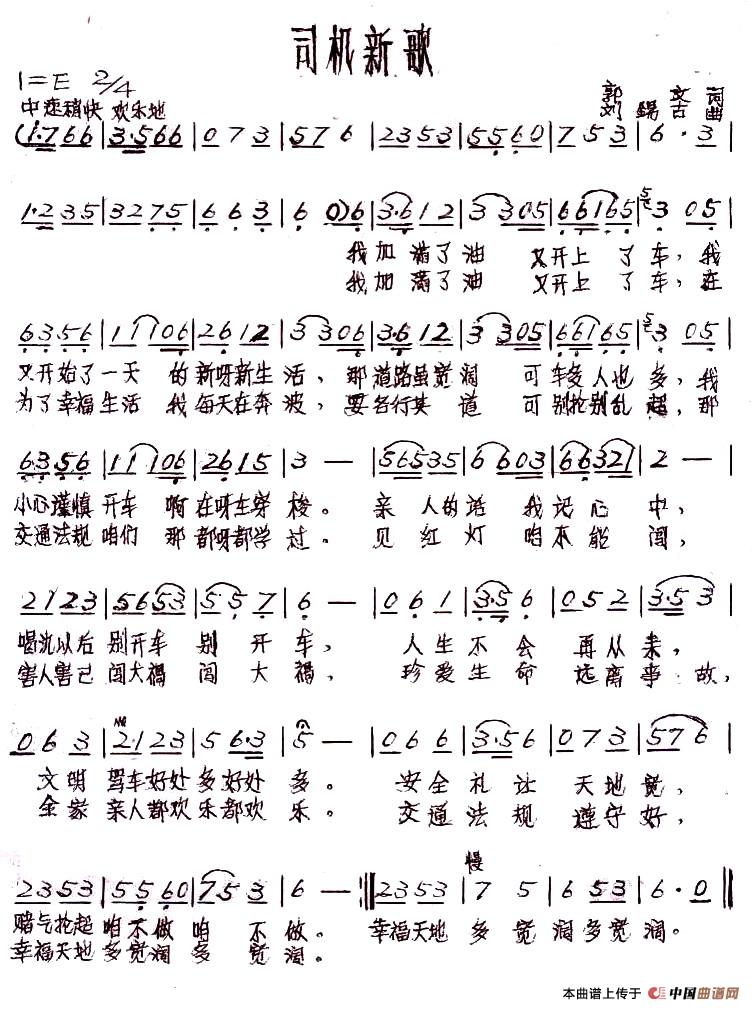 司机新歌
1=E 2/4
郭 文 词
中速稍快 欢乐地
刘 锡 古 曲
(1·766 | 3·566 | 0 7 3 | 5 7 6 | 2353 | 5560 | 7 5 3 | 6 · 3 |
1·235 | 3275 | 6 6 3 | 6 0) 6 | 3·6 1 2 | 3 3 05 | 66165 | 3 05 |
我加满了油 又开上了车，我
我加满了油 又开上了车，在
6356 | 11106 | 2612 | 3 306 | 3·612 | 3 305 | 66165 | 3 05 |
又开始了一天 的新呀新生活，那道路虽宽阔 可车多人也多，我
为了幸福生活 我每天在奔波，要各行其道 可别抢别乱超，那
6·356 | 11106 | 2615 | 3 — | 56535 | 6 603 | 66321 | 2 — |
小心谨慎开车 啊在呀在穿梭。亲人的话 我记心中，
交通法规咱们 那都呀都学过。见红灯 咱不能闯，
2123 | 5653 | 5 5 7 | 6 — | 0 6 1 | 3·5 6 | 0 5 2 | 3·5 3 |
喝洒以后别开车 别开车，人生不会再从来，
害人害己闯大祸 闯大祸，珍爱生命 远离事故，
0 6 3 | 2·123 | 5 6·3 | 5 — | 0 6 6 | 3·5 6 | 0 7 3 | 57 6 |
文明驾车好处多好处多。安全礼让天地宽，
全家亲人都欢乐都欢乐。交通法规遵守好，
慢
2353 | 5560 | 75 3 | 6 — :‖ 2353 | 7 5 | 6 53 | 6 · 0 ‖
赌气抢超咱不做咱不做。幸福天地多宽阔多宽阔。
幸福天地多宽阔多宽阔。
本曲谱上传于 中国曲谱网